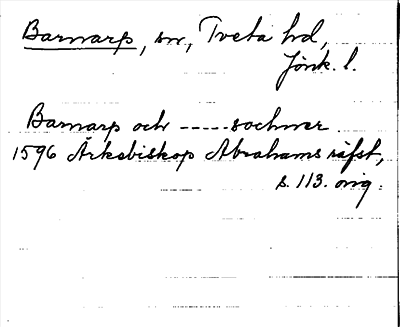 Barnarp, sn, Tveta hd,
Jönk. l.
Barnarp och ----- sochner.
1596 Ärkebiskop Abrahams räfst,
s. 113. orig.